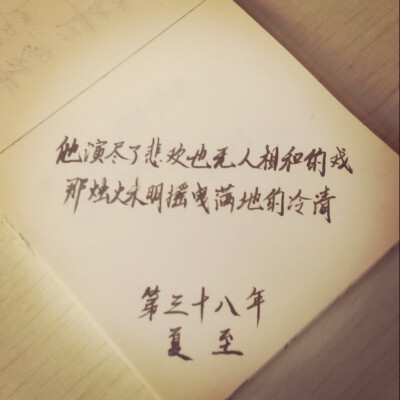 他演尽了悲欢也无人相和的戏
那烛火未明摇曳满地的冷清
第三十八年
夏至